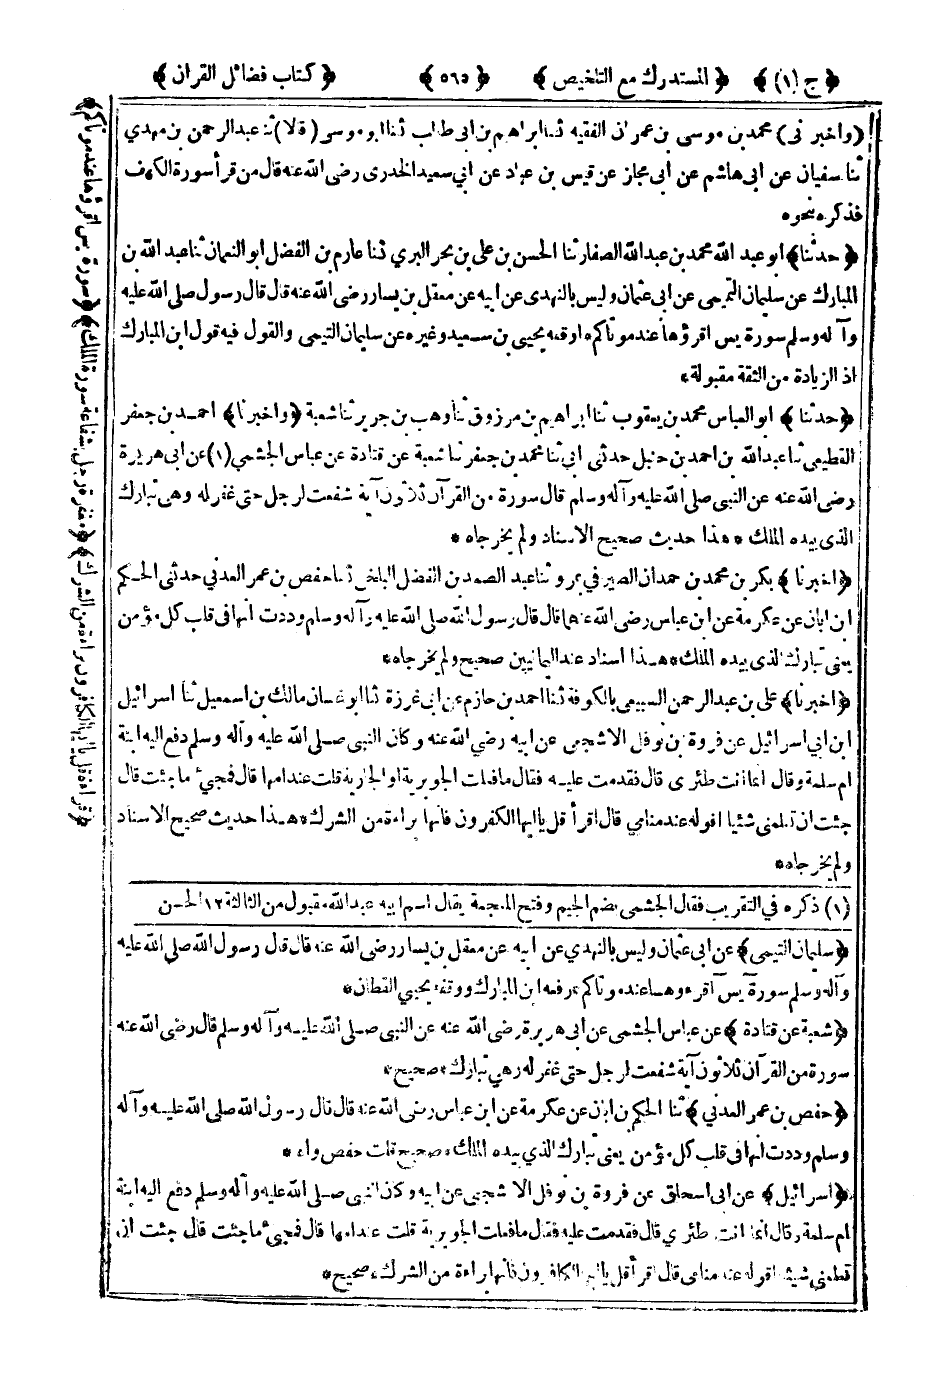 ﴿ ج (١) ﴾ ﴿ المستدرك مع التلخيص ﴾ ﴿ ٥٦٥ ﴾ ﴿ كتاب فضائل القرآن ﴾
(واخبرنى) محمد بن موسى بن عمران الفقيه ثنا ابراهيم بن ابى طالب ثنا ابو موسى (قالا) ثنا عبد الرحمن بن مهدي
ثنا سفيان عن ابى هاشم عن ابى مجلز عن قيس بن عباد عن ابي سعيد الخدرى رضى الله عنه قال من قرأ سورة الكهف
فذكره نحوه
﴿ حدثنا ﴾ ابو عبد الله محمد بن عبد الله الصفار ثنا الحسن بن على بن بحر البري ثنا عارم بن الفضل ابو النعمان ثنا عبد الله بن
المبارك عن سليمان التيمى عن ابى عثمان وليس بالنهدى عن ابيه عن معقل بن يسار رضى الله عنه قال قال رسول صلى الله عليه
وآله وسلم سورة يس اقرؤها عند موتاكم * اوقفه يحيى بن سعيد وغيره عن سليمان التيمى والقول فيه قول ابن المبارك
اذ الزيادة من الثقة مقبولة *
﴿ حدثنا ﴾ ابو العباس محمد بن يعقوب ثنا ابراهيم بن مرزوق ثنا وهب بن جرير ثنا شعبة ﴿ واخبرنا ﴾ احمد بن جعفر
القطيعى ثنا عبد الله بن احمد بن حنبل حدثنى ابى ثنا محمد بن جعفر ثنا شعبة عن قتادة عن عباس الجشمى (١) عن ابى هريرة
رضى الله عنه عن النبى صلى الله عليه وآله وسلم قال سورة من القرآن ثلاثون آية شفعت لرجل حتى غفر له وهى تبارك
الذى بيده الملك * هذا حديث صحيح الاسناد ولم يخرجاه *
﴿ اخبرنا ﴾ بكر بن محمد بن حمدان الصيرفي بمرو ثنا عبد الصمد بن الفضل البلخى ثنا حفص بن عمر العدني حدثنى الحكم
ابن ابان عن عكرمة عن ابن عباس رضى الله عنهما قال قال رسول الله صلى الله عليه وآله وسلم وددت انها فى قلب كل مؤمن
يعنى تبارك الذى بيده الملك * هذا اسناد عند اليمانيين صحيح ولم يخرجاه *
﴿ اخبرنا ﴾ على بن عبد الرحمن السبيعى بالكوفة ثنا احمد بن حازم بن ابى غرزة ثنا ابو غسان مالك بن اسمعيل ثنا اسرائيل
ابن ابي اسرائيل عن فروة بن نوفل الاشجعى عن ابيه رضى الله عنه وكان النبى صلى الله عليه وآله وسلم دفع اليه ابنة
ام سلمة وقال انما انت ظئرى قال فقدمت عليه فقال ما فعلت الجويرية او الجارية قلت عند امها قال فمجيء ما جئت قال
جئت ان تعلمنى شيئا اقوله عند منامي قال اقرأ قل يا ايها الكفرون فانها براءة من الشرك * هذا حديث صحيح الاسناد
ولم يخرجاه *
(١) ذكره في التقريب فقال الجشمى بضم الجيم وفتح المعجمة يقال اسم ابيه عبد الله مقبول من الثالثة ١٢ الحسن
﴿ سليمان التيمى ﴾ عن ابى عثمان وليس بالنهدي عن ابيه عن معقل بن يسار رضى الله عنه قال قال رسول الله صلى الله عليه
وآله وسلم سورة يس اقرءوها عند موتاكم * رفعه ابن المبارك ووقفه يحيى القطان *
﴿ شعبة عن قتادة ﴾ عن عباس الجشمى عن ابى هريرة رضى الله عنه عن النبى صلى الله عليه وآله وسلم قال رضى الله عنه
سورة من القرآن ثلاثون آية شفعت لرجل حتى غفر له وهي تبارك * صحيح *
﴿ حفص بن عمر العدني ﴾ ثنا الحكم بن ابان عن عكرمة عن ابن عباس رضى الله عنه قال قال رسول الله صلى الله عليه وآله
وسلم وددت انها فى قلب كل مؤمن يعنى تبارك الذي بيده الملك * صحيح قلت حفص واه *
﴿ اسرائيل ﴾ عن ابى اسحاق عن فروة بن نوفل الاشجعى عن ابيه وكان النبى صلى الله عليه وآله وسلم دفع اليه ابنة
ام سلمة وقال انما انت ظئرى قال فقدمت عليه فقال ما فعلت الجويرية قلت عند امها قال فمجئ ما جئت قال جئت ان
تعلمنى شيئا اقوله عند منامى قال اقرأ قل يا ايها الكافرون فانها براءة من الشرك * صحيح *
﴿ سورة يس اقرؤها عند موتاكم ﴾ ﴿ مغفرة رجل بشفاعة سورة الملك ﴾ ﴿ قراءة قل يا ايها الكافرون براءة من الشرك ﴾